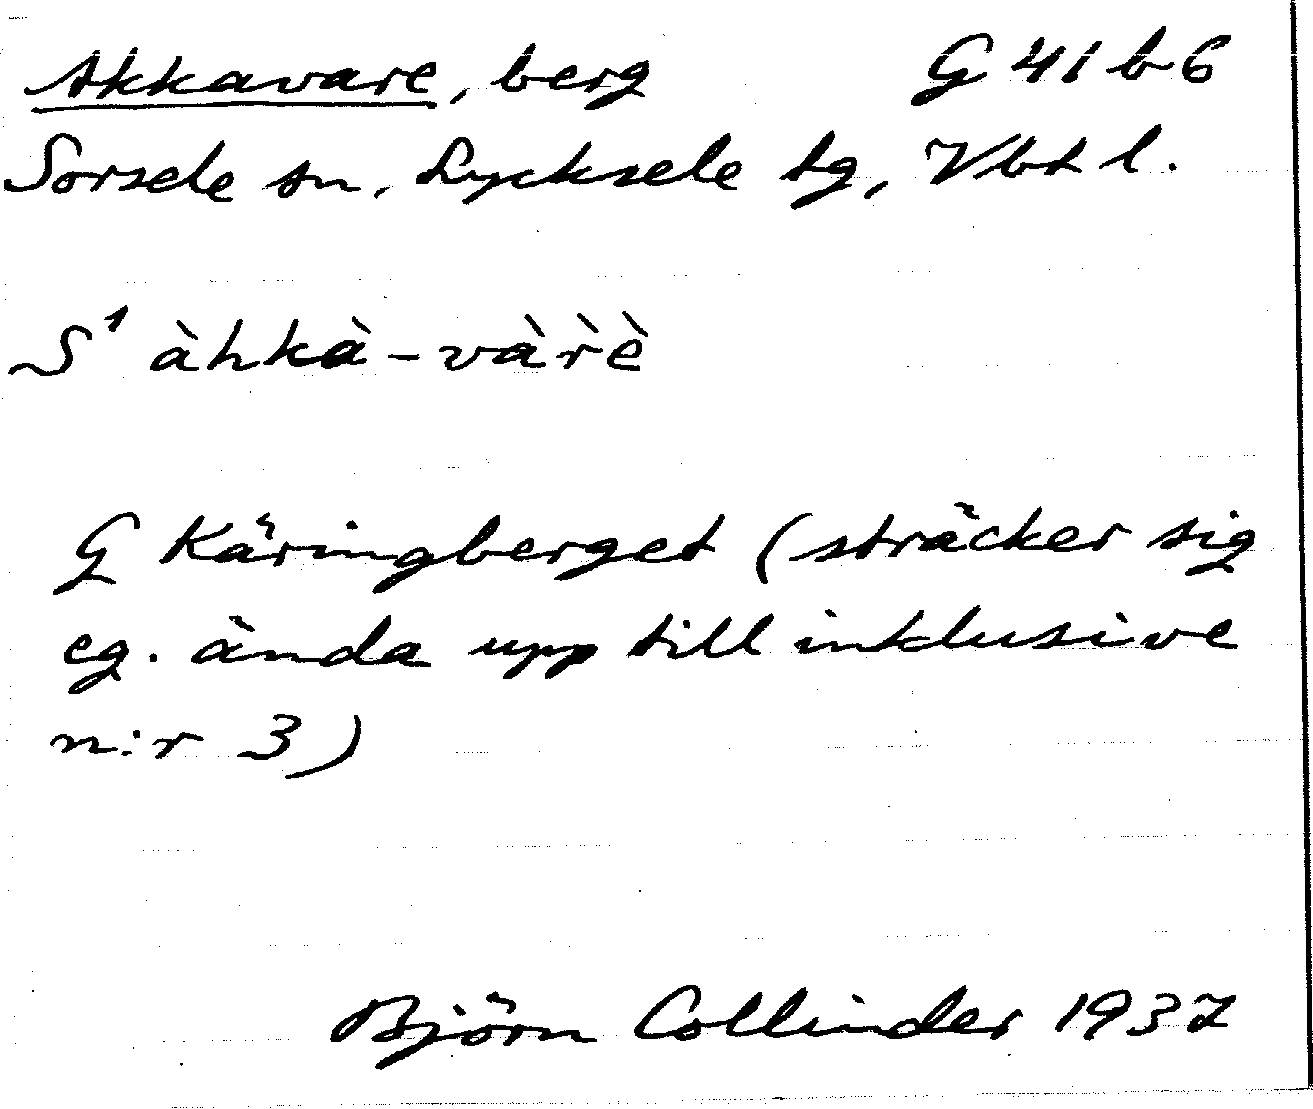 Akkavare, berg G 41 b 6
Sorsele sn, Lycksele tg, Vbt l.
S¹ àhkà-vàr̀è
G Käringberget (sträcker sig
eg. ända upp till inklusive
n:r 3)
Björn Collinder 1937